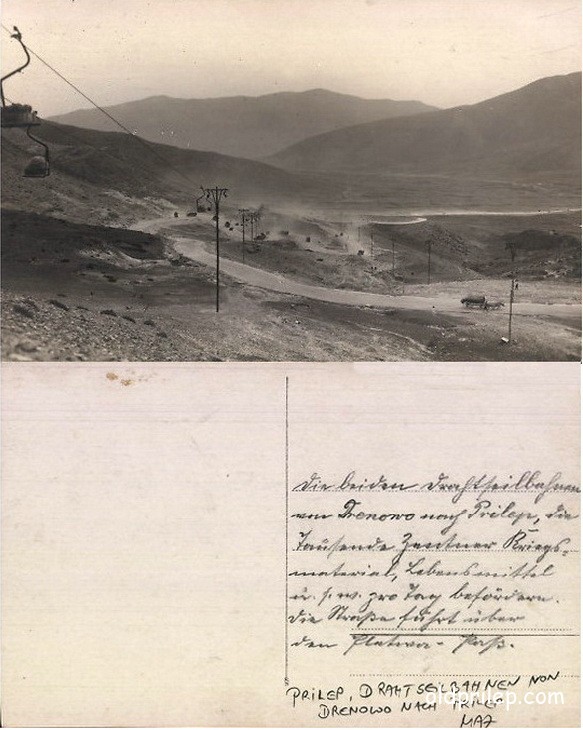 Die beiden Drahtseilbahnen
von Drenowo nach Prilep, die
Tausende Zentner Kriegs-
material, Lebensmittel
u. s. w. pro Tag befördern.
Die Straße führt über
den Pletwa-Paß.
PRILEP, DRAHTSEILBAHNEN NON
DRENOWO NACH PRILEP
MAZ
oldprilep.com